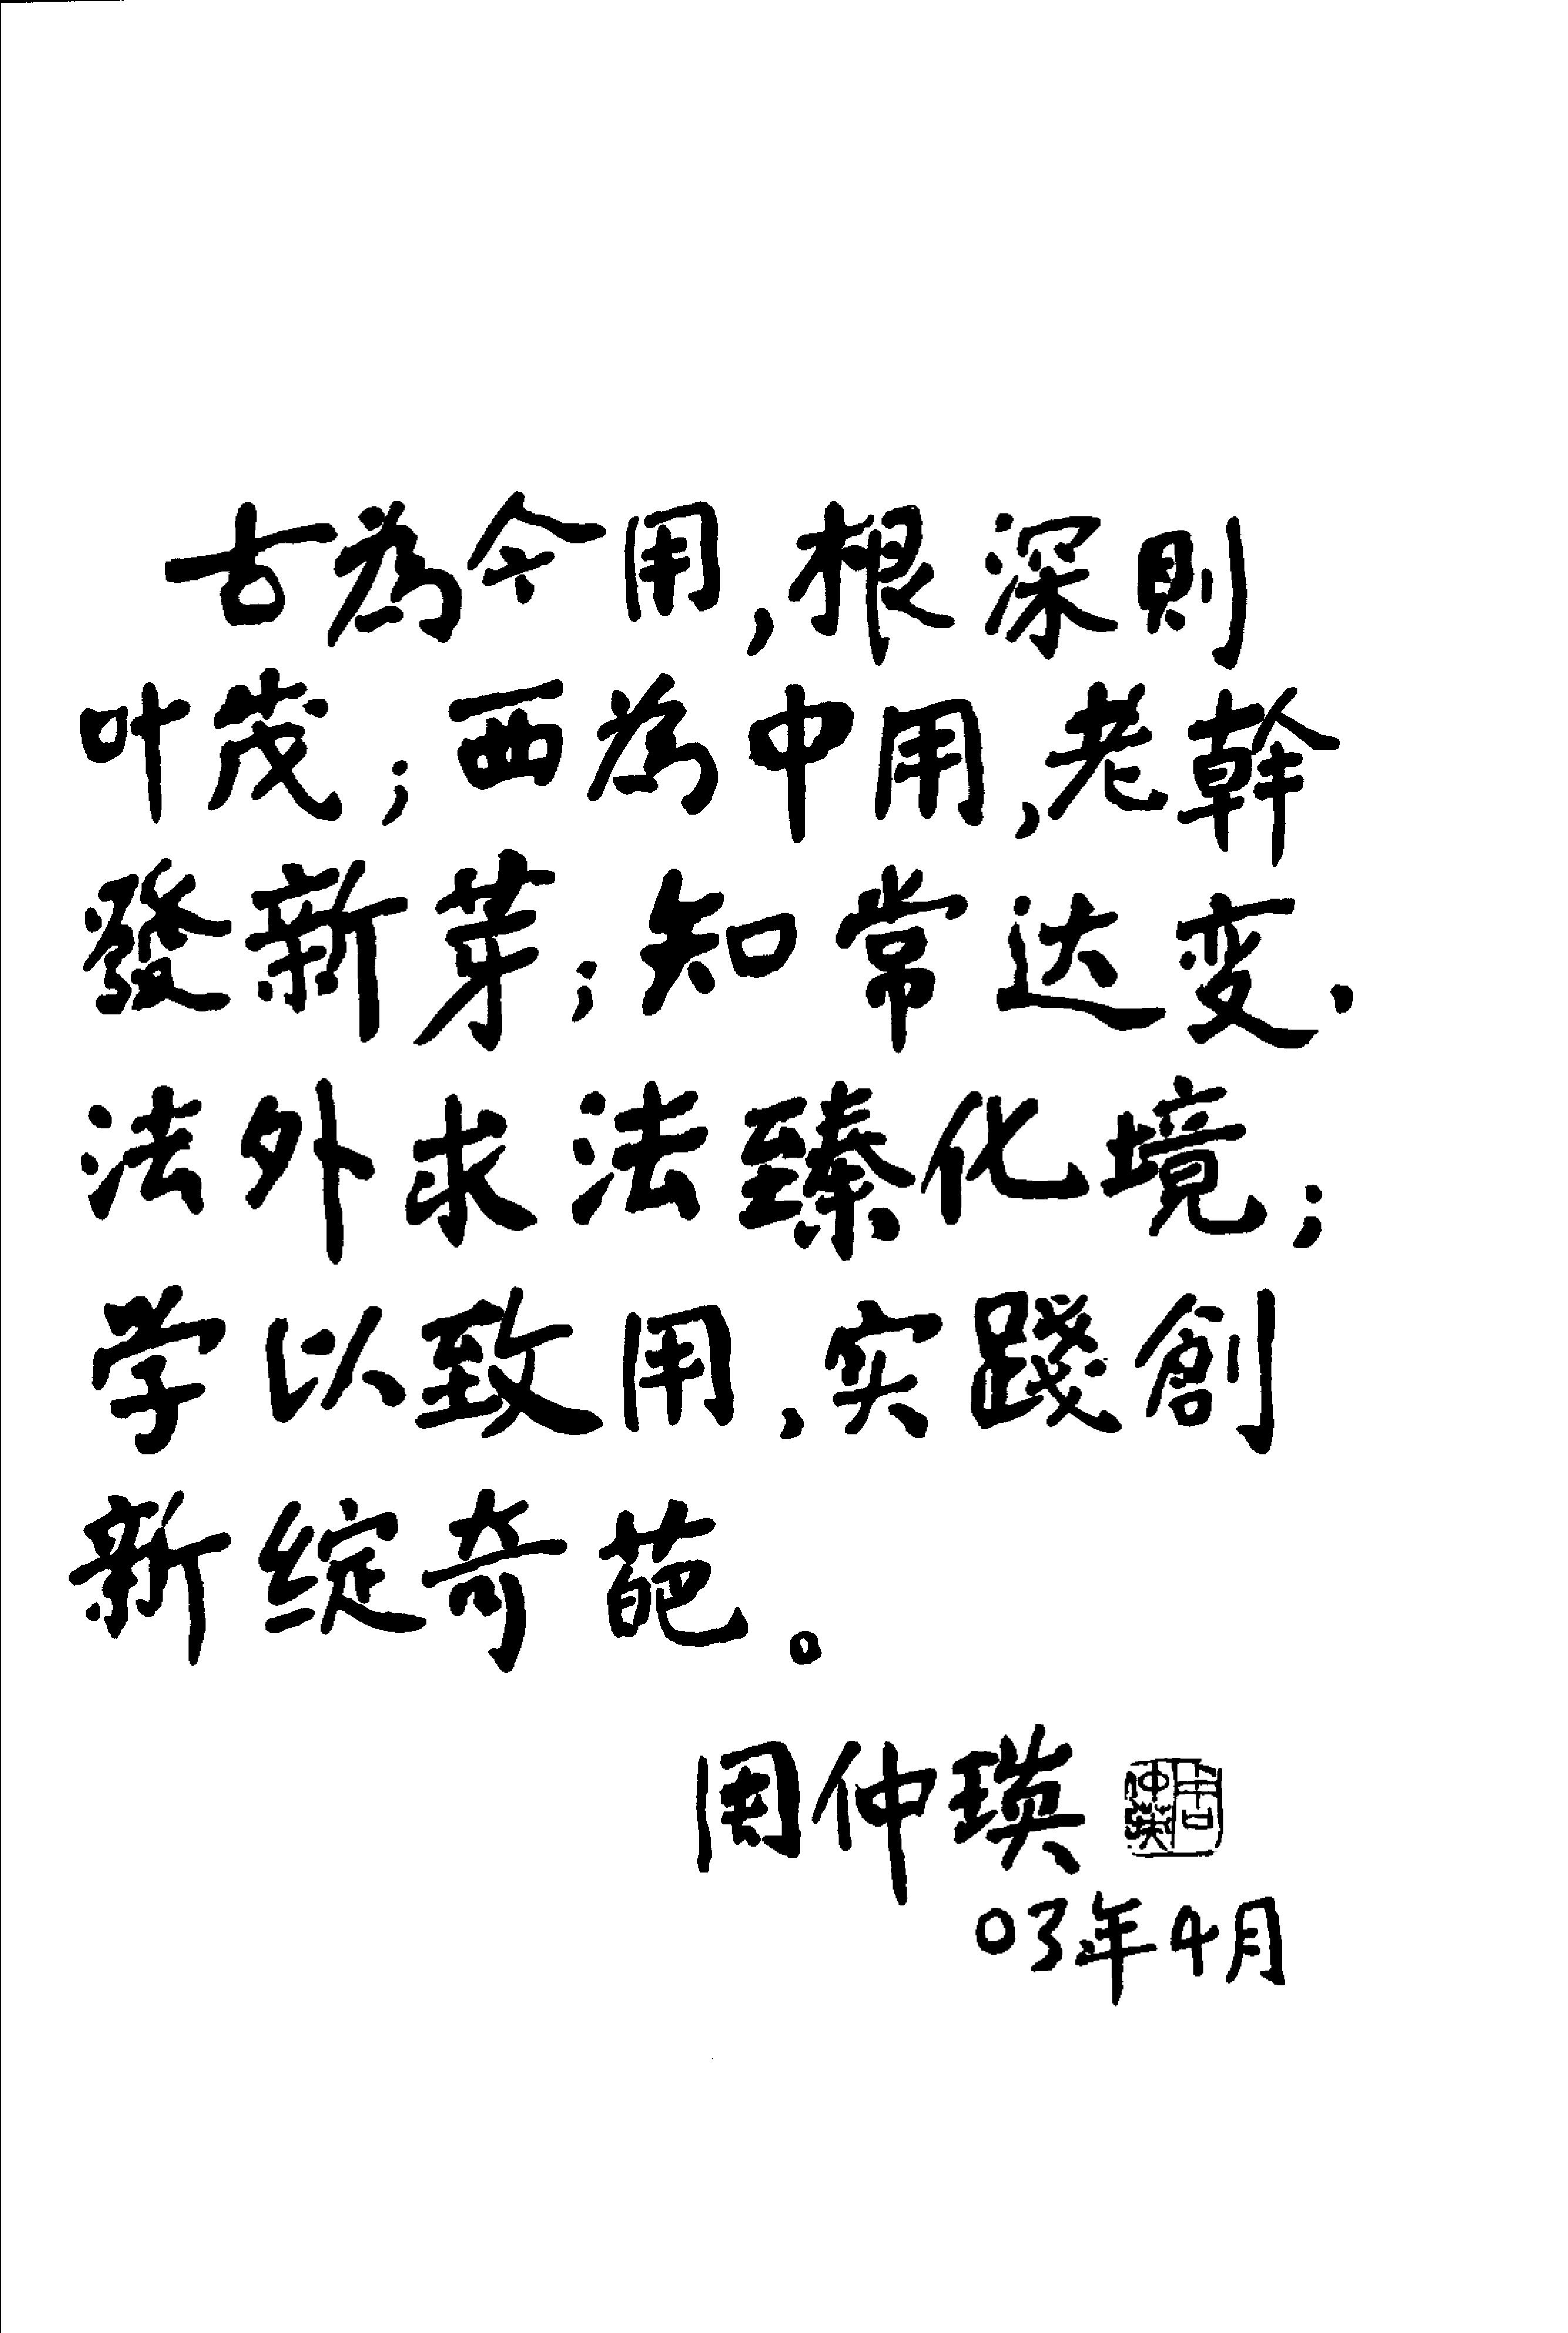 古為今用,根深則
叶茂;西為中用,老幹
發新芽;知常达变.
法外求法臻化境;
学以致用,实踐創
新綻奇葩。
周仲瑛
周仲英
03年4月